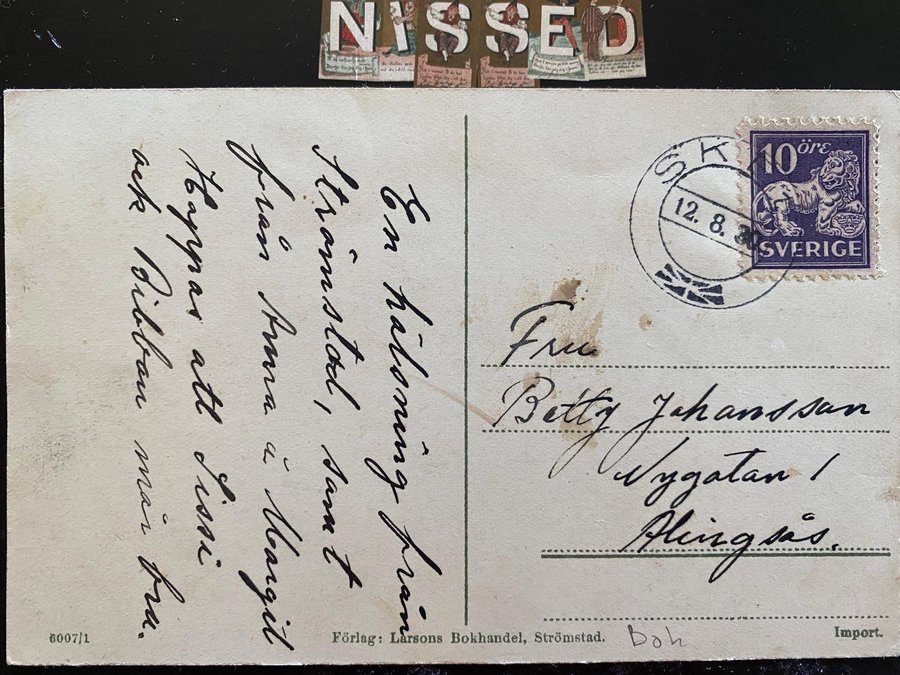 NISSED
En hälsning från
Strömstad, samt
från Anna å Margit
Hoppas att Sissi
ock Bibban mår bra.
SK
12. 8. 30
10 öre
SVERIGE
Fru
Betty Johansson
Nygatan 1
Alingsås.
6007/1
Förlag: Larsons Bokhandel, Strömstad.
Boh
Import.